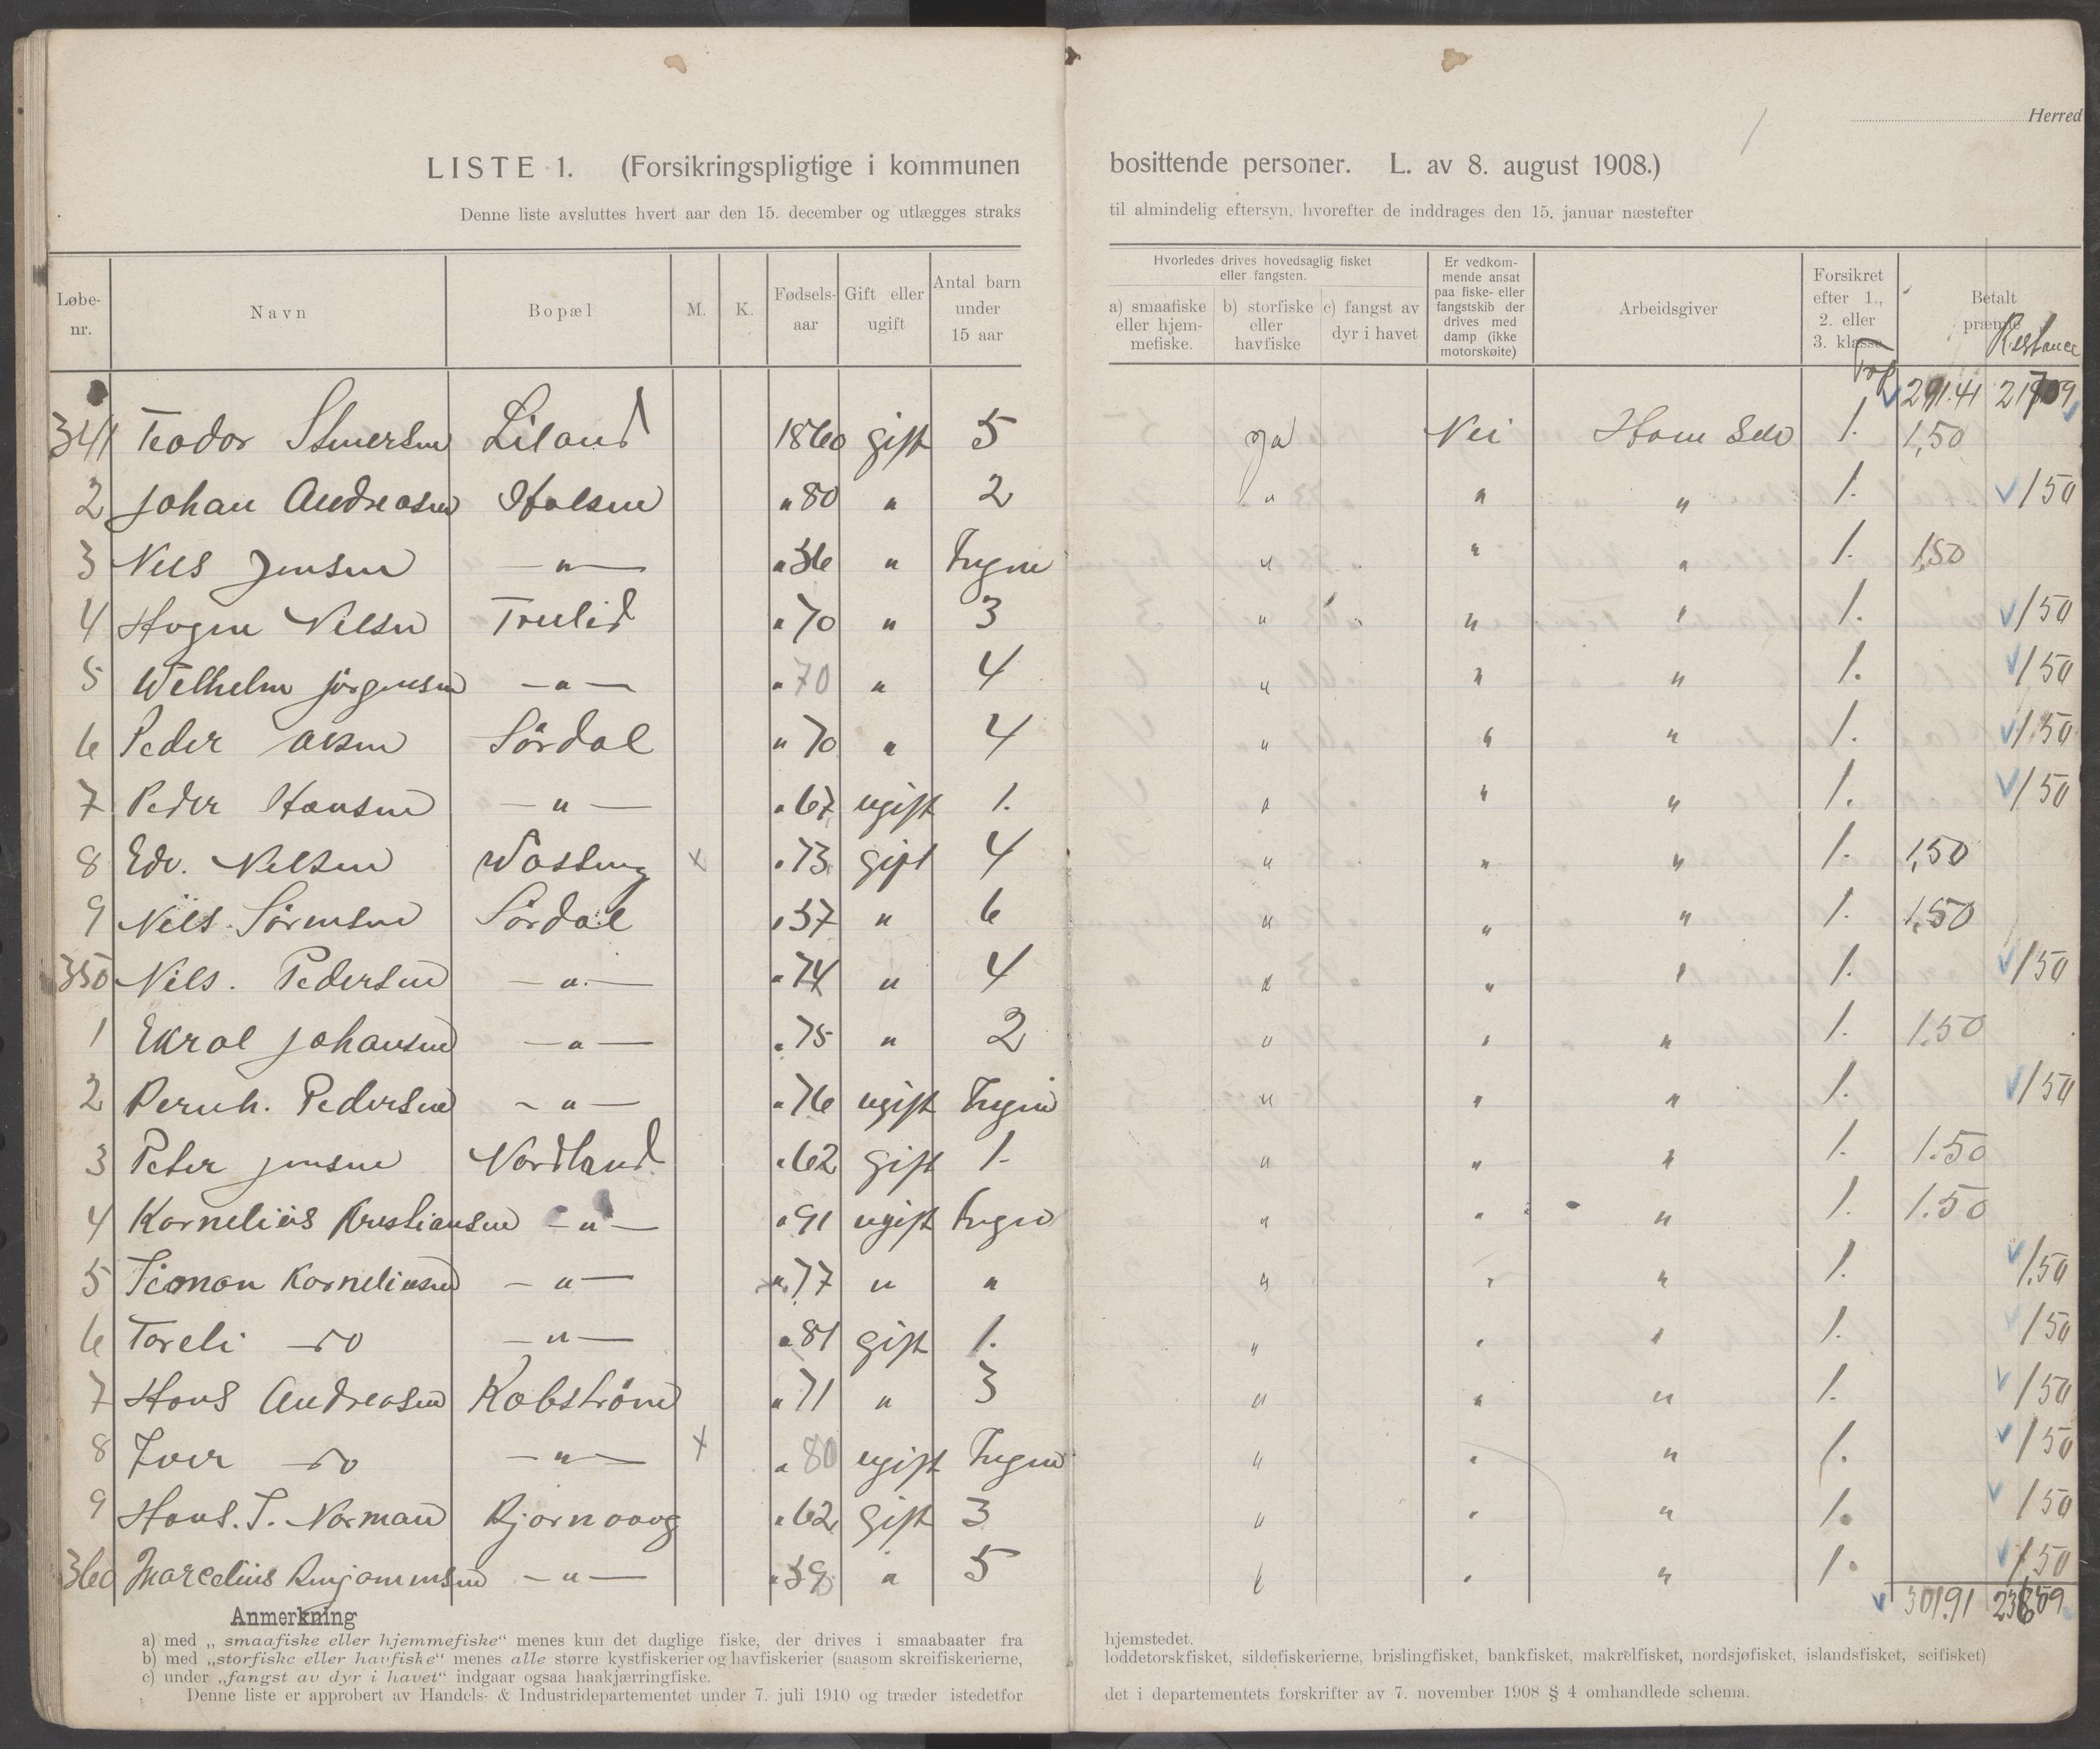 Herred
LISTE 1. (Forsikringspligtige i kommunen bosittende personer. L. av 8. august 1908.)
Denne liste avsluttes hvert aar den 15. december og utlægges straks til almindelig eftersyn, hvorefter de inddrages den 15. januar næstefter
Løbe-nr. Navn Bopæl M. K. Fødsels-aar Gift eller ugift Antal barn under 15 aar Hvorledes drives hovedsaglig fisket eller fangsten. a) smaafiske eller hjem-mefiske. b) storfiske eller havfiske c) fangst av dyr i havet Er vedkom-mende ansat paa fiske- eller fangstskib der drives med damp (ikke motorskøite) Arbeidsgiver Forsikret efter 1., 2. eller 3. klasse Betalt præmie Restance
291.41
341 Teodor Liland 1860 gift 5 ja Nei Ham Selv 1. 1,50
2 Johan Andreasen " 80 " 2 " " " 1. 1 50
3 Nils Jensen — " — " 36 " Ingen " " " 1. 1,50
4 Hogen Nilsen " 70 " 3 " " " 1. 1 50
5 Welhelm Jörgensen — " — " 70 " 4 " " " 1. 1 50
6 Peder Sördal " 70 " 4 " " " 1. 1.50
7 Peder Hansen — " — " 67 ugift 1. " " " 1. 1 50
8 Edv. Nilsen x " 73 gift 4 " " " 1. 1,50
9 Nils Sörensen Sördal " 57 " 6 " " " 1. 1,50
350 Nils. Pedersen — " — " 74 " 4 " " " 1. 1 50
1 Johansen — " — " 75 " 2 " " " 1. 1.50
2 Bernh. Pedersen — " — " 76 ugift Ingen " " " 1. 1 50
3 Peter Jensen Nordland " 62 gift 1. " " " 1. 1.50
4 Kornelius Kristiansen — " — " 91 ugift Ingen " " " 1. 1.50
5 Korneliusen — " — " 77 " " " " " 1. 1.50
6 Toreli do — " — " 81 gift 1. " " " 1. 1 50
7 Hans Andreasen Kobström " 71 " 3 " " " 1. 1 50
8 Iver do — " — x " 80 ugift Ingen " " " 1. 1 50
9 Hans. J. Norman " 62 gift 3 " " " 1. 1 50
360 Marcelius Benjaminsen — " — " 59 " 5 " " 1. 1.50
301.91
Anmerkning
a) med „smaafiske eller hjemmefiske“ menes kun det daglige fiske, der drives i smaabaater fra hjemstedet.
b) med „storfiske eller havfiske“ menes alle større kystfiskerier og havfiskerier (saasom skreifiskerierne, loddetorskfisket, sildefiskerierne, brislingfisket, bankfisket, makrelfisket, nordsjøfisket, islandsfisket, seifisket)
c) under „fangst av dyr i havet“ indgaar ogsaa haakjærringfiske.
Denne liste er approbert av Handels- & Industridepartementet under 7. juli 1910 og træder istedetfor det i departementets forskrifter av 7. november 1908 § 4 omhandlede schema.